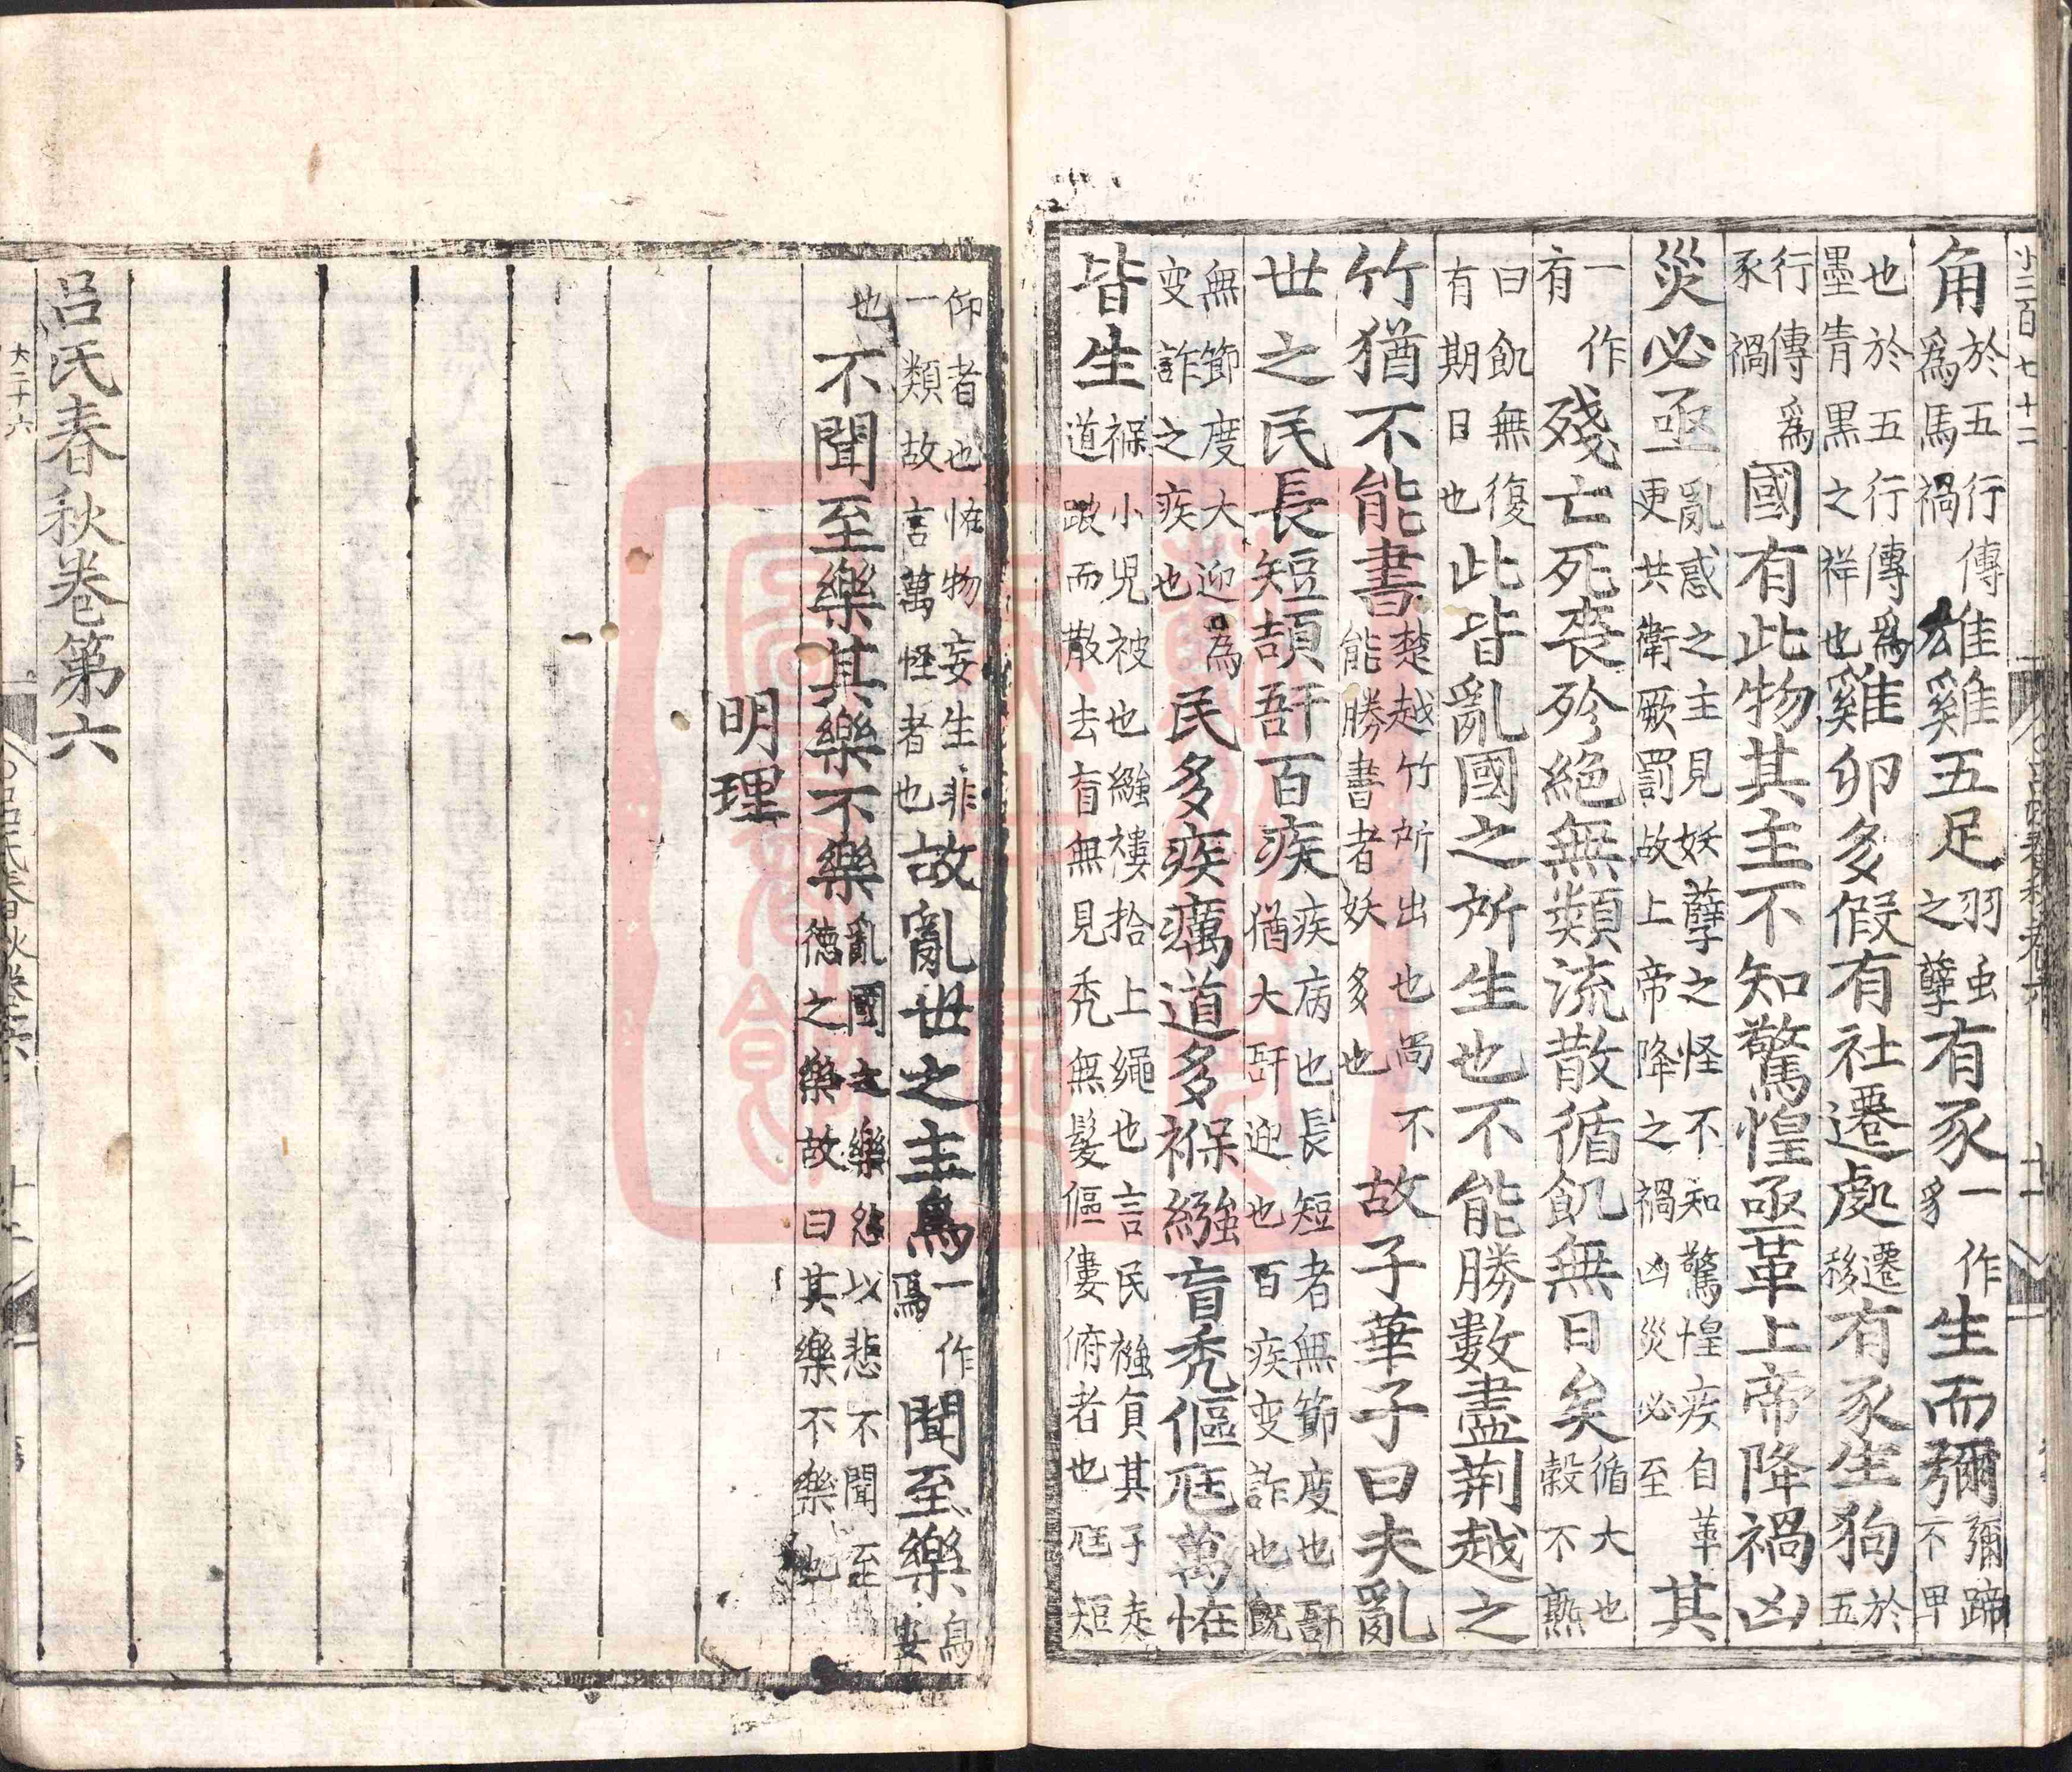 小三百七十二
角於五行傳爲馬禍雄雞五足羽虫之孽有豕一作豸生而彌彌蹄不甲
也於五行傳爲墨青黑之祥也雞卵多假有社遷處遷移有豕生狗於五
行傳爲豕禍國有此物其主不知驚惶亟革上帝降禍凶
災必亟亂惑之主見妖孽之怪不知驚惶疾自革更共衛厥罰故上帝降之禍凶災必至其
一作有殘亡死喪殄絕無類流散循飢無日矣循大也穀不熟
曰飢無復有期日也此皆亂國之所生也不能勝數盡荆越之
竹猶不能書楚越竹所出也尚不能勝書者妖多也故子華子曰夫亂
世之民長短頡䛃百疾疾病也長短者無節度也䛃猶大䛃迎也百疾变詐也既
無節度大迎為变詐之疾也民多疾癘道多褓繈盲禿傴尪萬怪
皆生褓小兒被也繈褸拾上繩也言民襁負其子走道踧而散去盲無見禿無髮傴僂俯者也尪短
仰者也怪物妄生非一類故言萬怪者也故亂世之主烏一作焉聞至樂烏安
也不聞至樂其樂不樂亂國之樂怨以悲不聞至德之樂故曰其樂不樂也
明理
呂氏春秋卷第六
大二十六
呂氏春秋卷六
十二